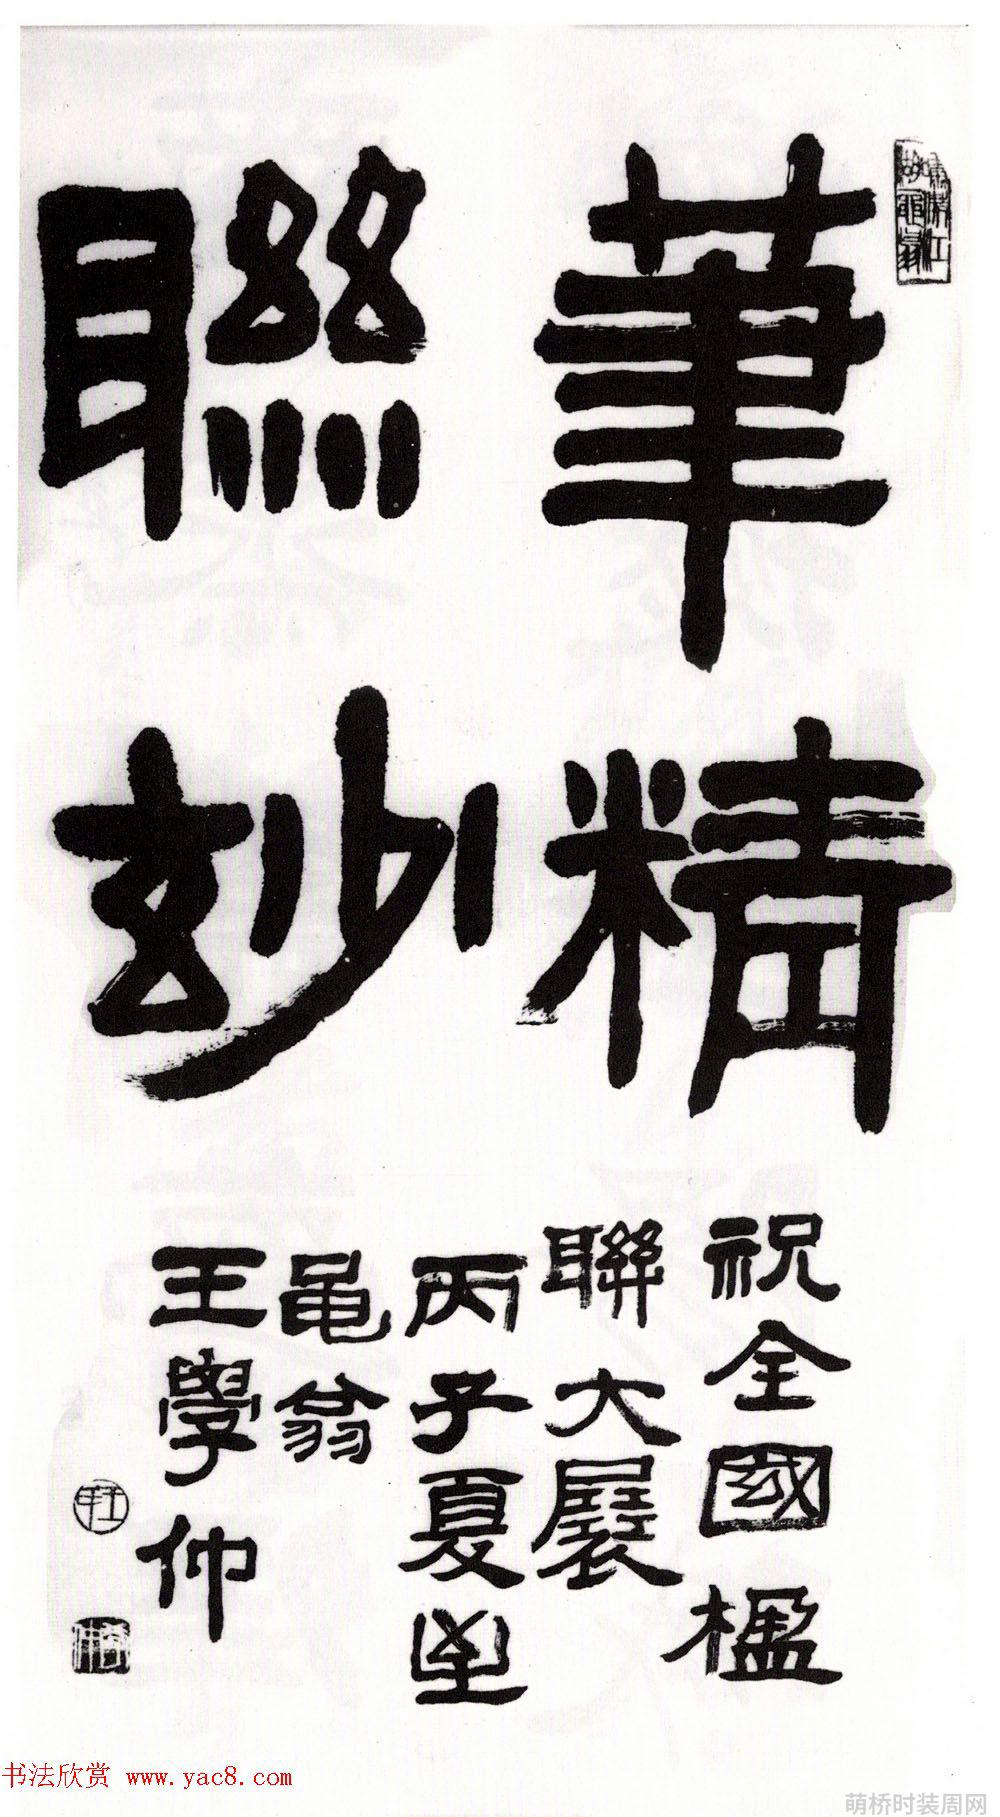 筆精
聯玅
祝全國楹
聯大展
丙子夏
黽翁
王學仲
书法欣赏 www.yac8.com
萌桥时装周网